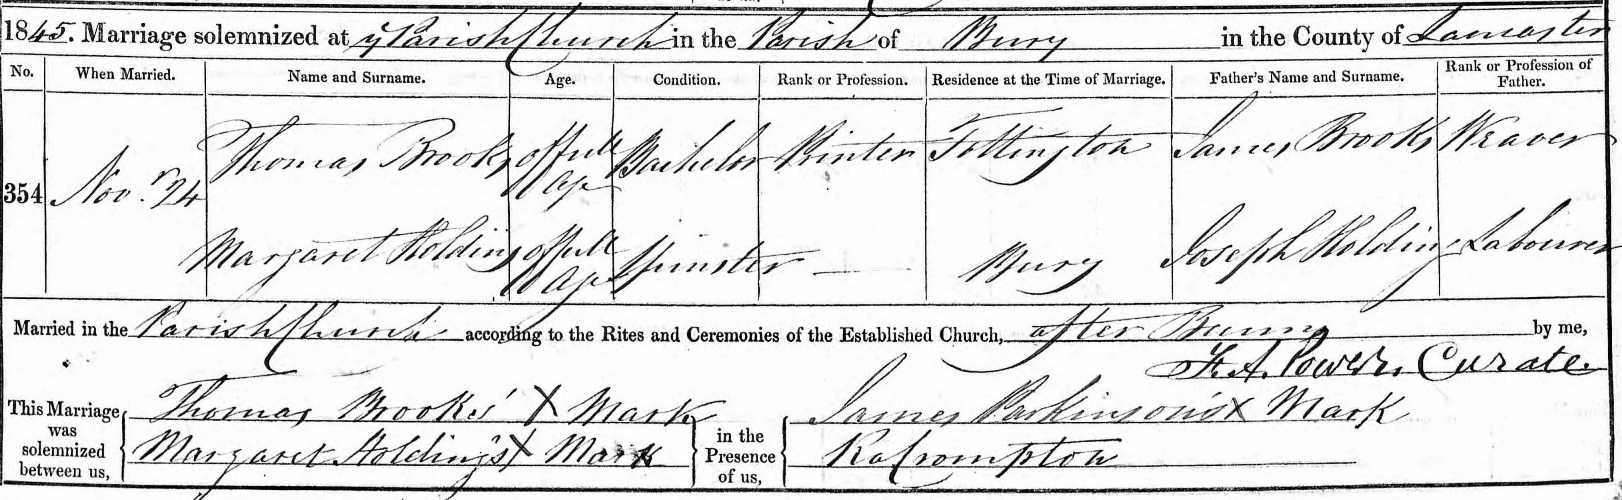 1845. Marriage solemnized at ye Parish Church in the Parish of Bury in the County of Lancaster
No. When Married. Name and Surname. Age. Condition. Rank or Profession. Residence at the Time of Marriage. Father's Name and Surname. Rank or Profession of Father.
354 Novr. 24 Thomas Brooks of full Age Bachelor Printer Tottington James Brooks Weaver
Margaret Holding of full Age Spinster — Bury Joseph Holding Labourer
Married in the Parish Church according to the Rites and Ceremonies of the Established Church, after Banns by me,
Powers, Curate
This Marriage was solemnized between us, Thomas Brooks' X Mark in the Presence of us, James Parkinson's X Mark
Margaret Holding's X Mark Crompton